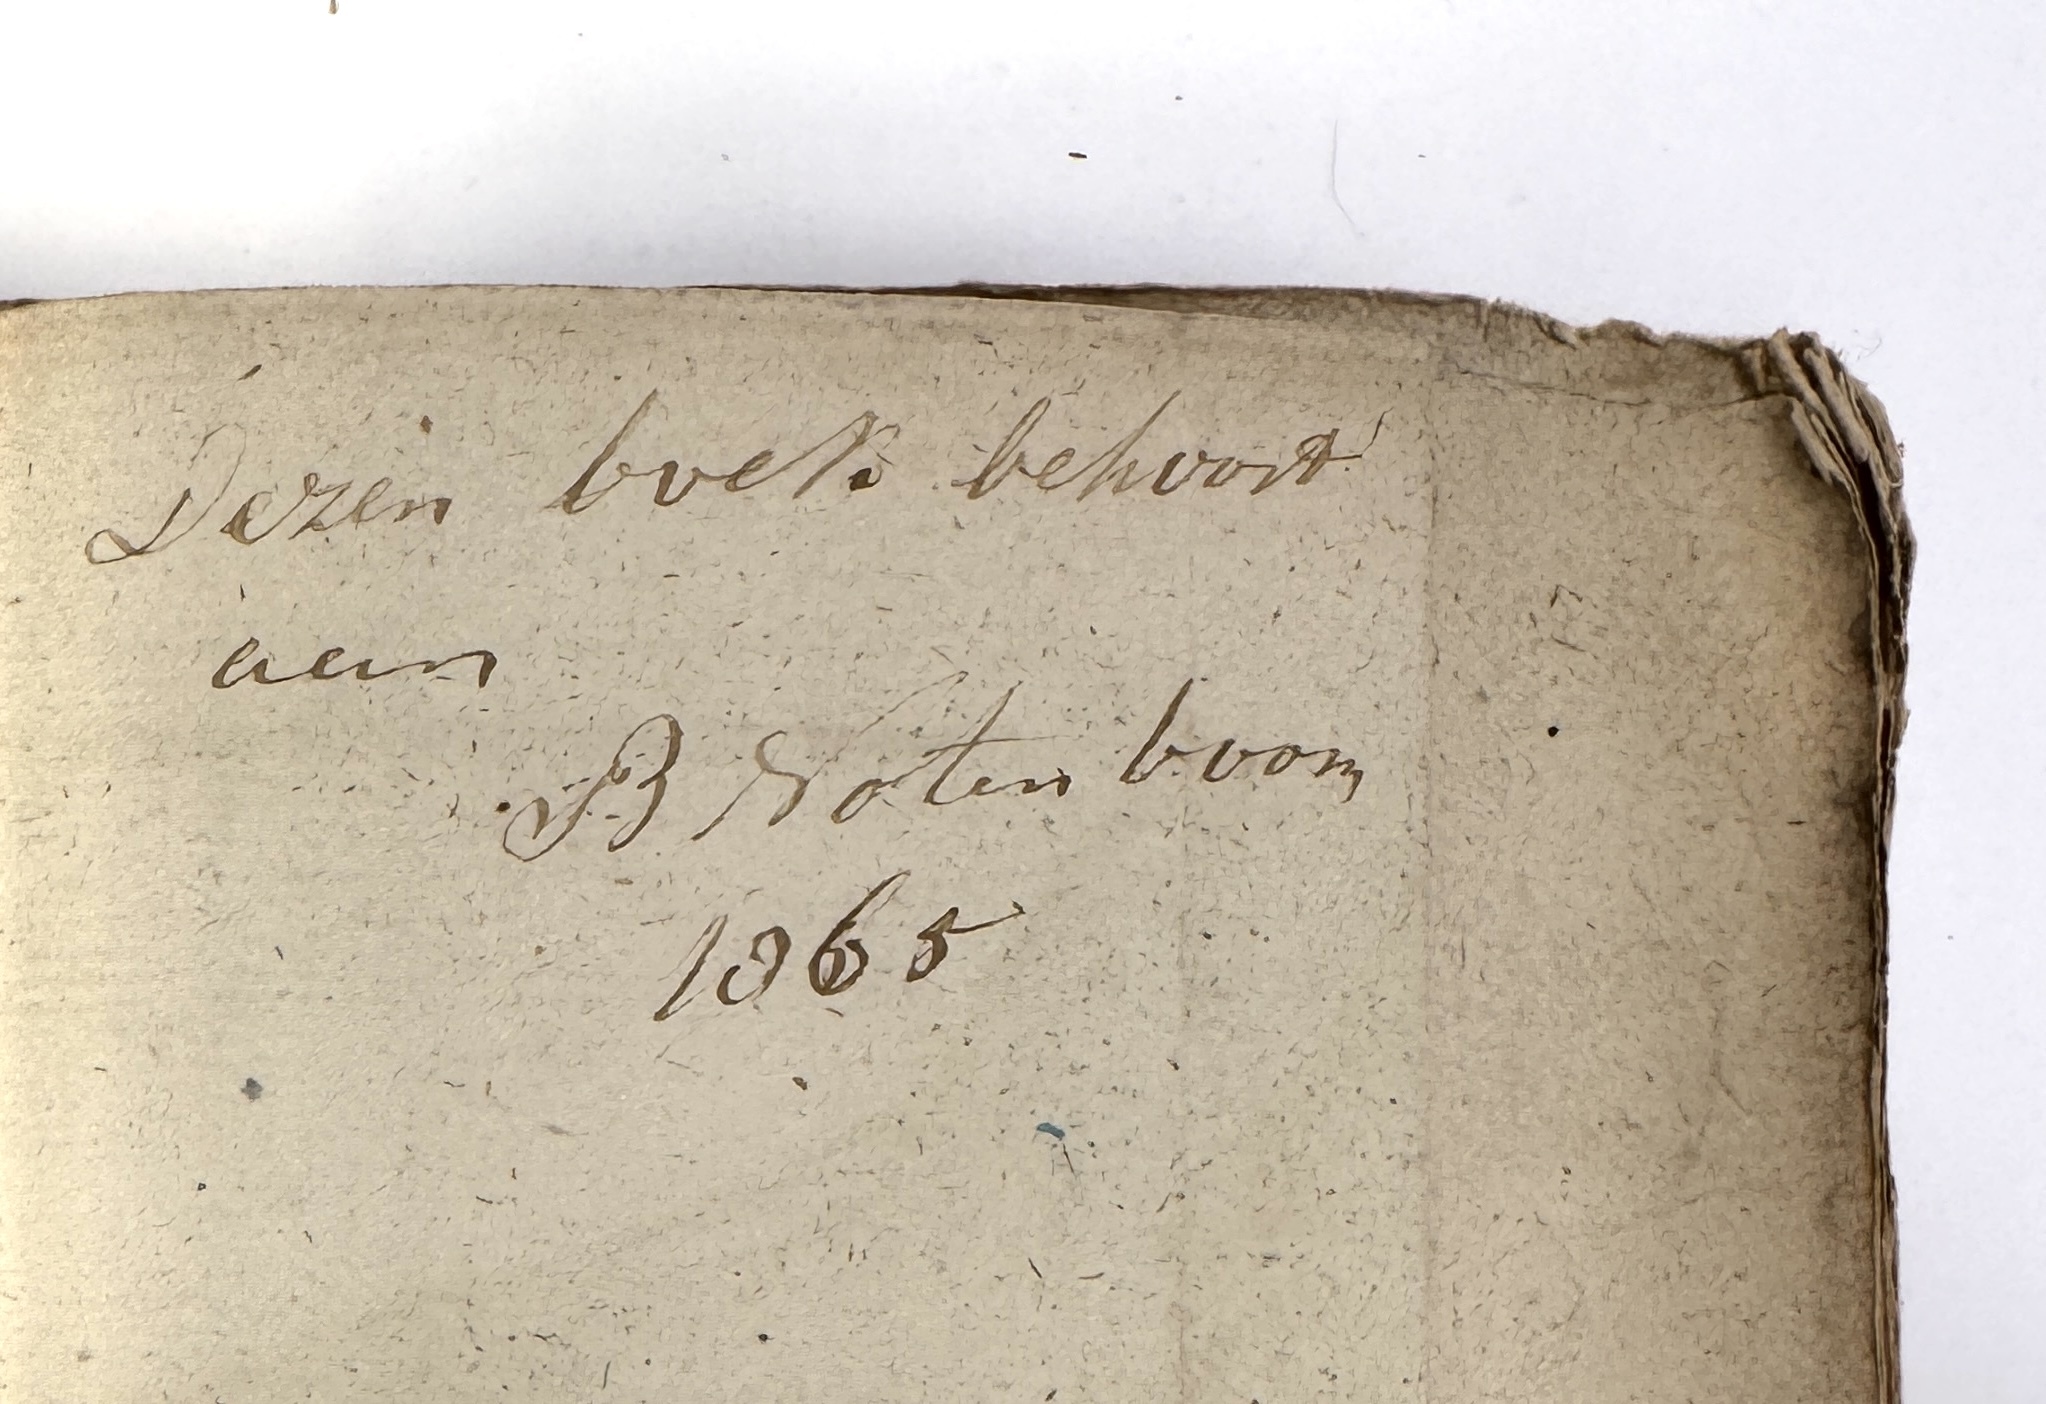 Dezen boek behoort
aan
B Noten boom
1865